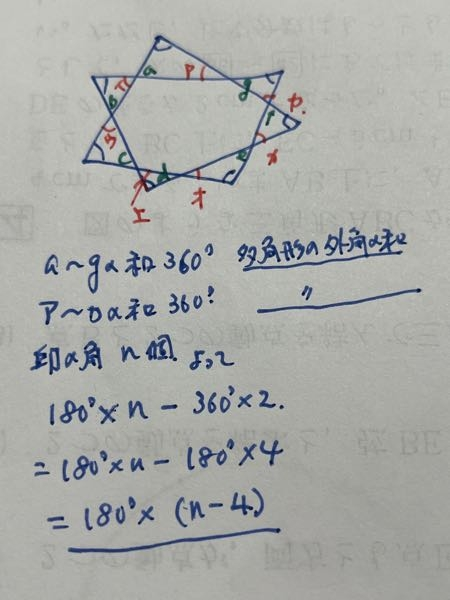 a
ア
g
カ
f
b
イ
ウ
c
d
e
エ
オ
a～gの和 360° 多角形の外角の和
ア～の和 360° 〃
印の角 n個 よって
180°×n－360°×2.
=180°×n－180°×4
=180°×(n－4)